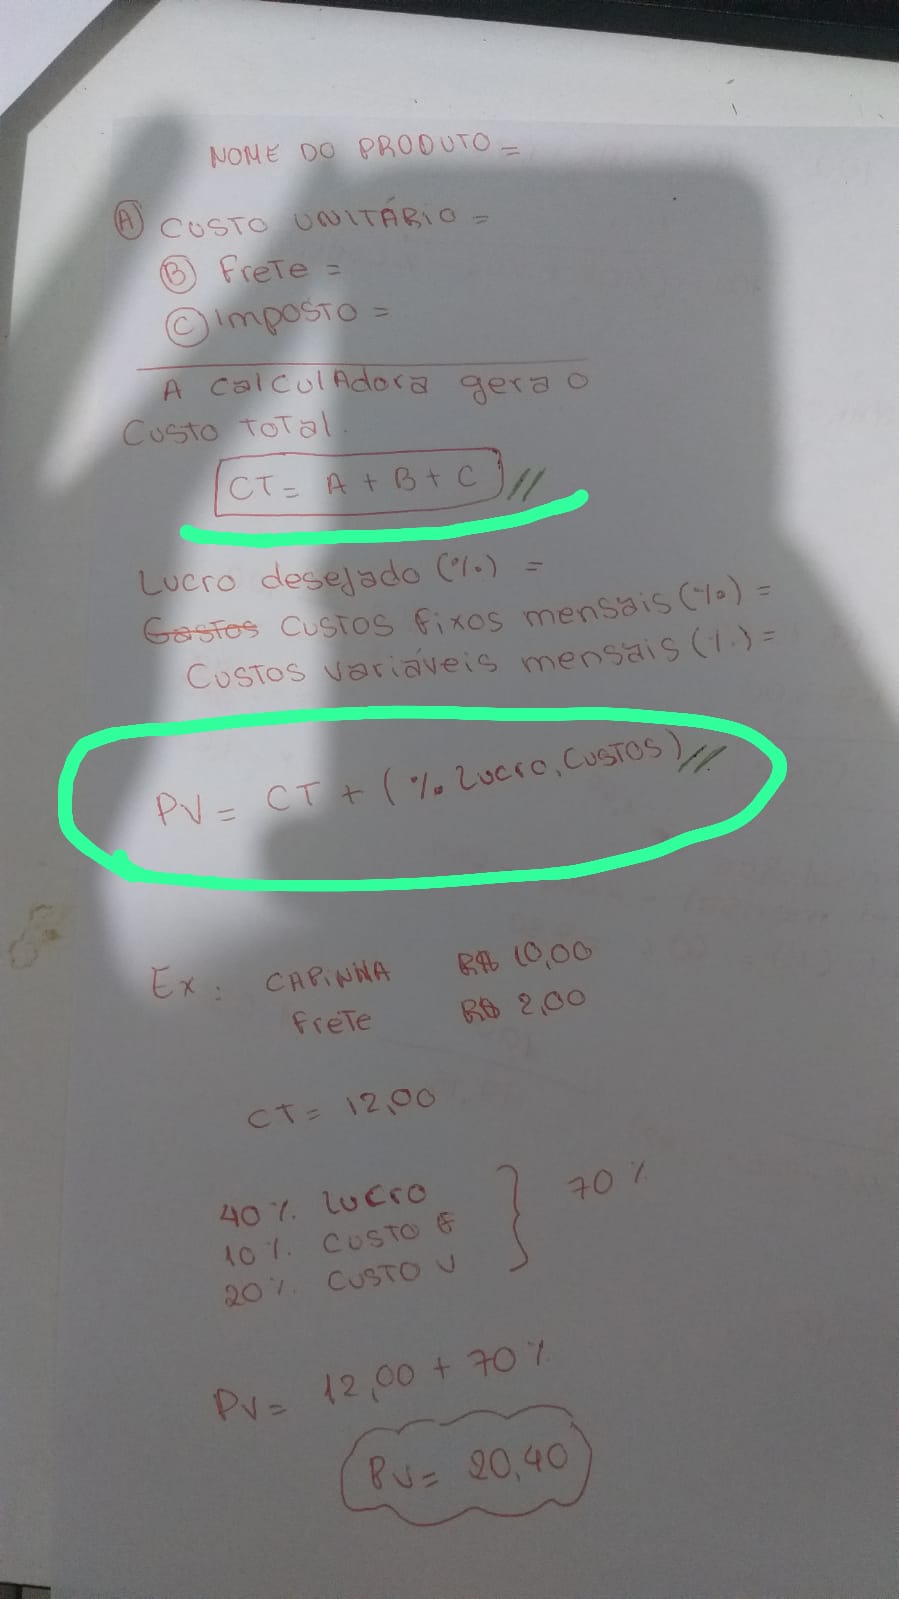 NOME DO PRODUTO =
A CUSTO UNITÁRIO =
B Frete =
C Imposto =
A calculadora gera o
Custo total.
CT = A + B + C //
Lucro desejado (%) =
Gastos Custos fixos mensais (%) =
Custos variáveis mensais (%) =
PV = CT + (% Lucro, Custos) //
Ex: CAPINHA R$ 10,00
Frete R$ 2,00
CT = 12,00
40 % Lucro
10 % Custo F
20 % Custo V
70 %
PV = 12,00 + 70 %
PV = 20,40